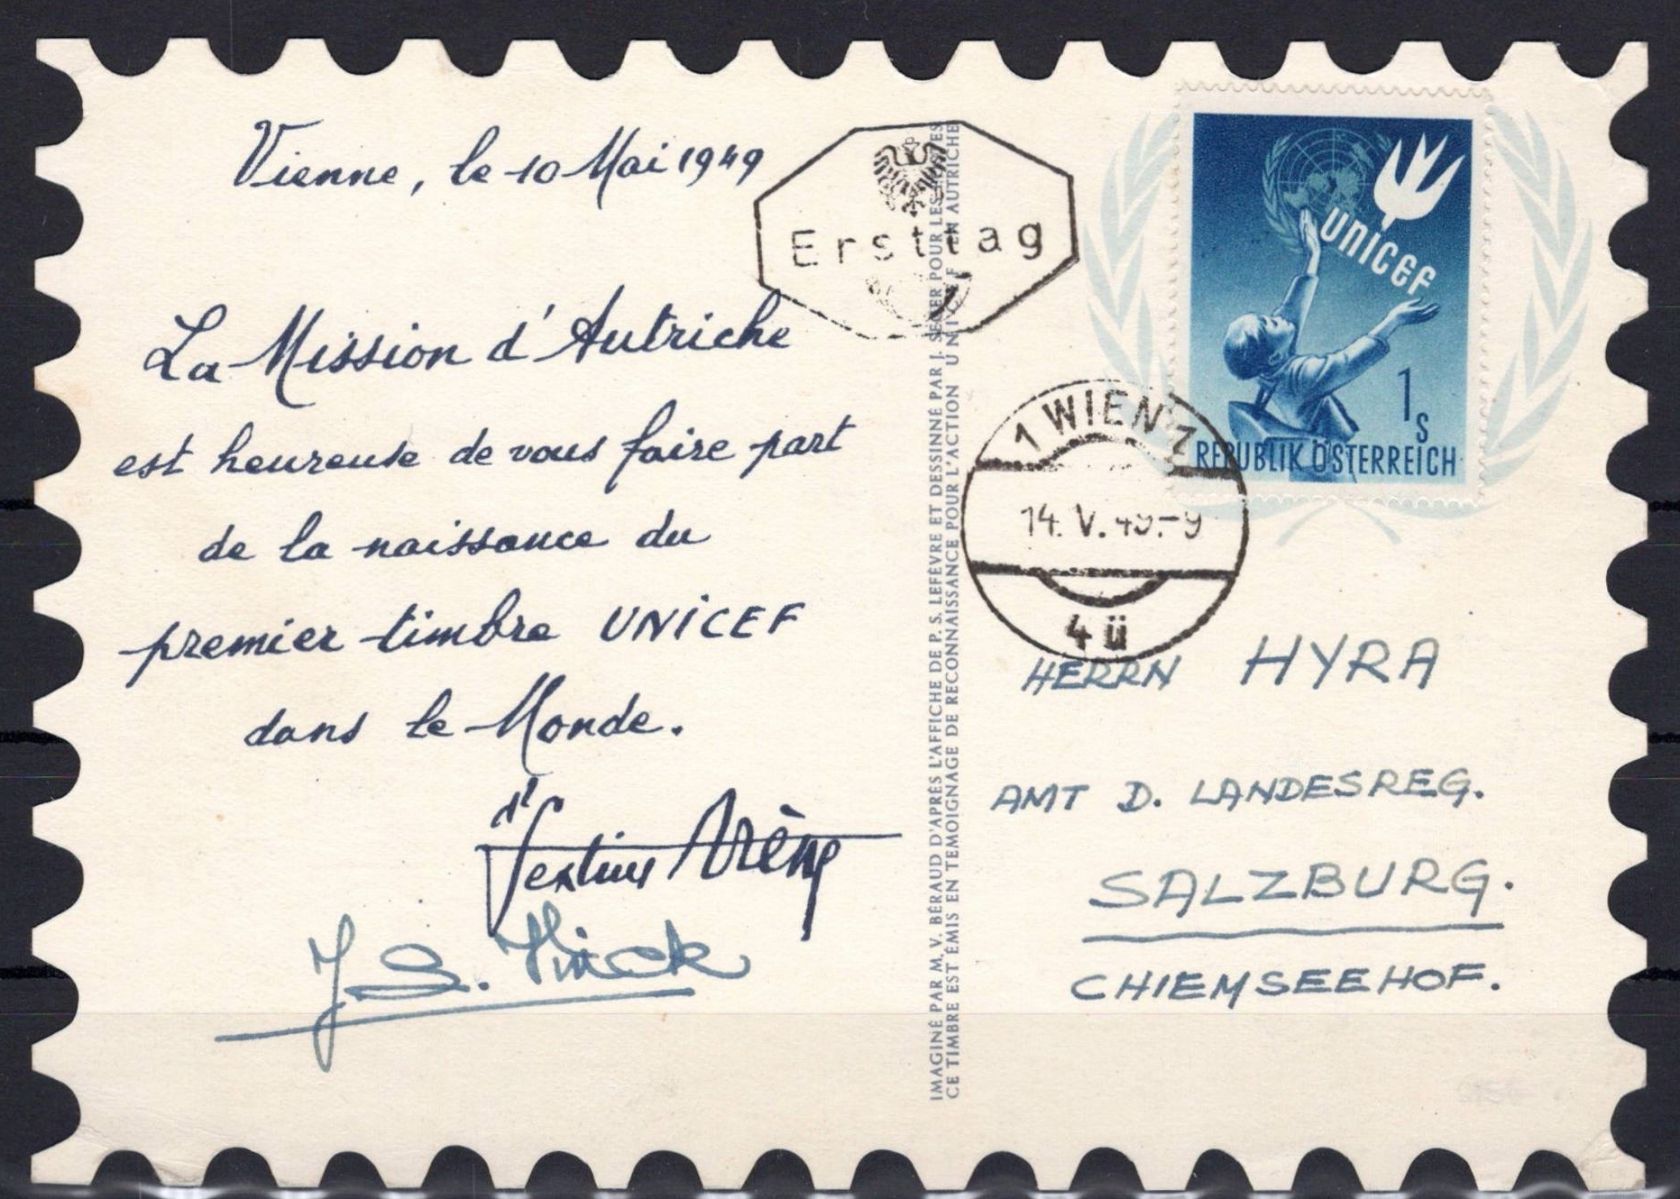 Vienne, le 10 Mai 1949
La Mission d'Autriche
est heureuse de vous faire part
de la naissance du
premier timbre UNICEF
dans le Monde.
Ersttag
IMAGINÉ PAR M. V. BÉRAUD D'APRÈS L'AFFICHE DE P. S. LEFÈVRE ET DESSINNÉ PAR J. POUR LES
CE TIMBRE EST ÉMIS EN TEMOIGNAGE DE RECONNAISSANCE POUR L'ACTION UNICEF EN AUTRICHE
UNICEF
1 S
REPUBLIK ÖSTERREICH
1 WIEN 1
14. V. 49.-9
4ü
HERRN HYRA
AMT D. LANDESREG.
SALZBURG.
CHIEMSEEHOF.